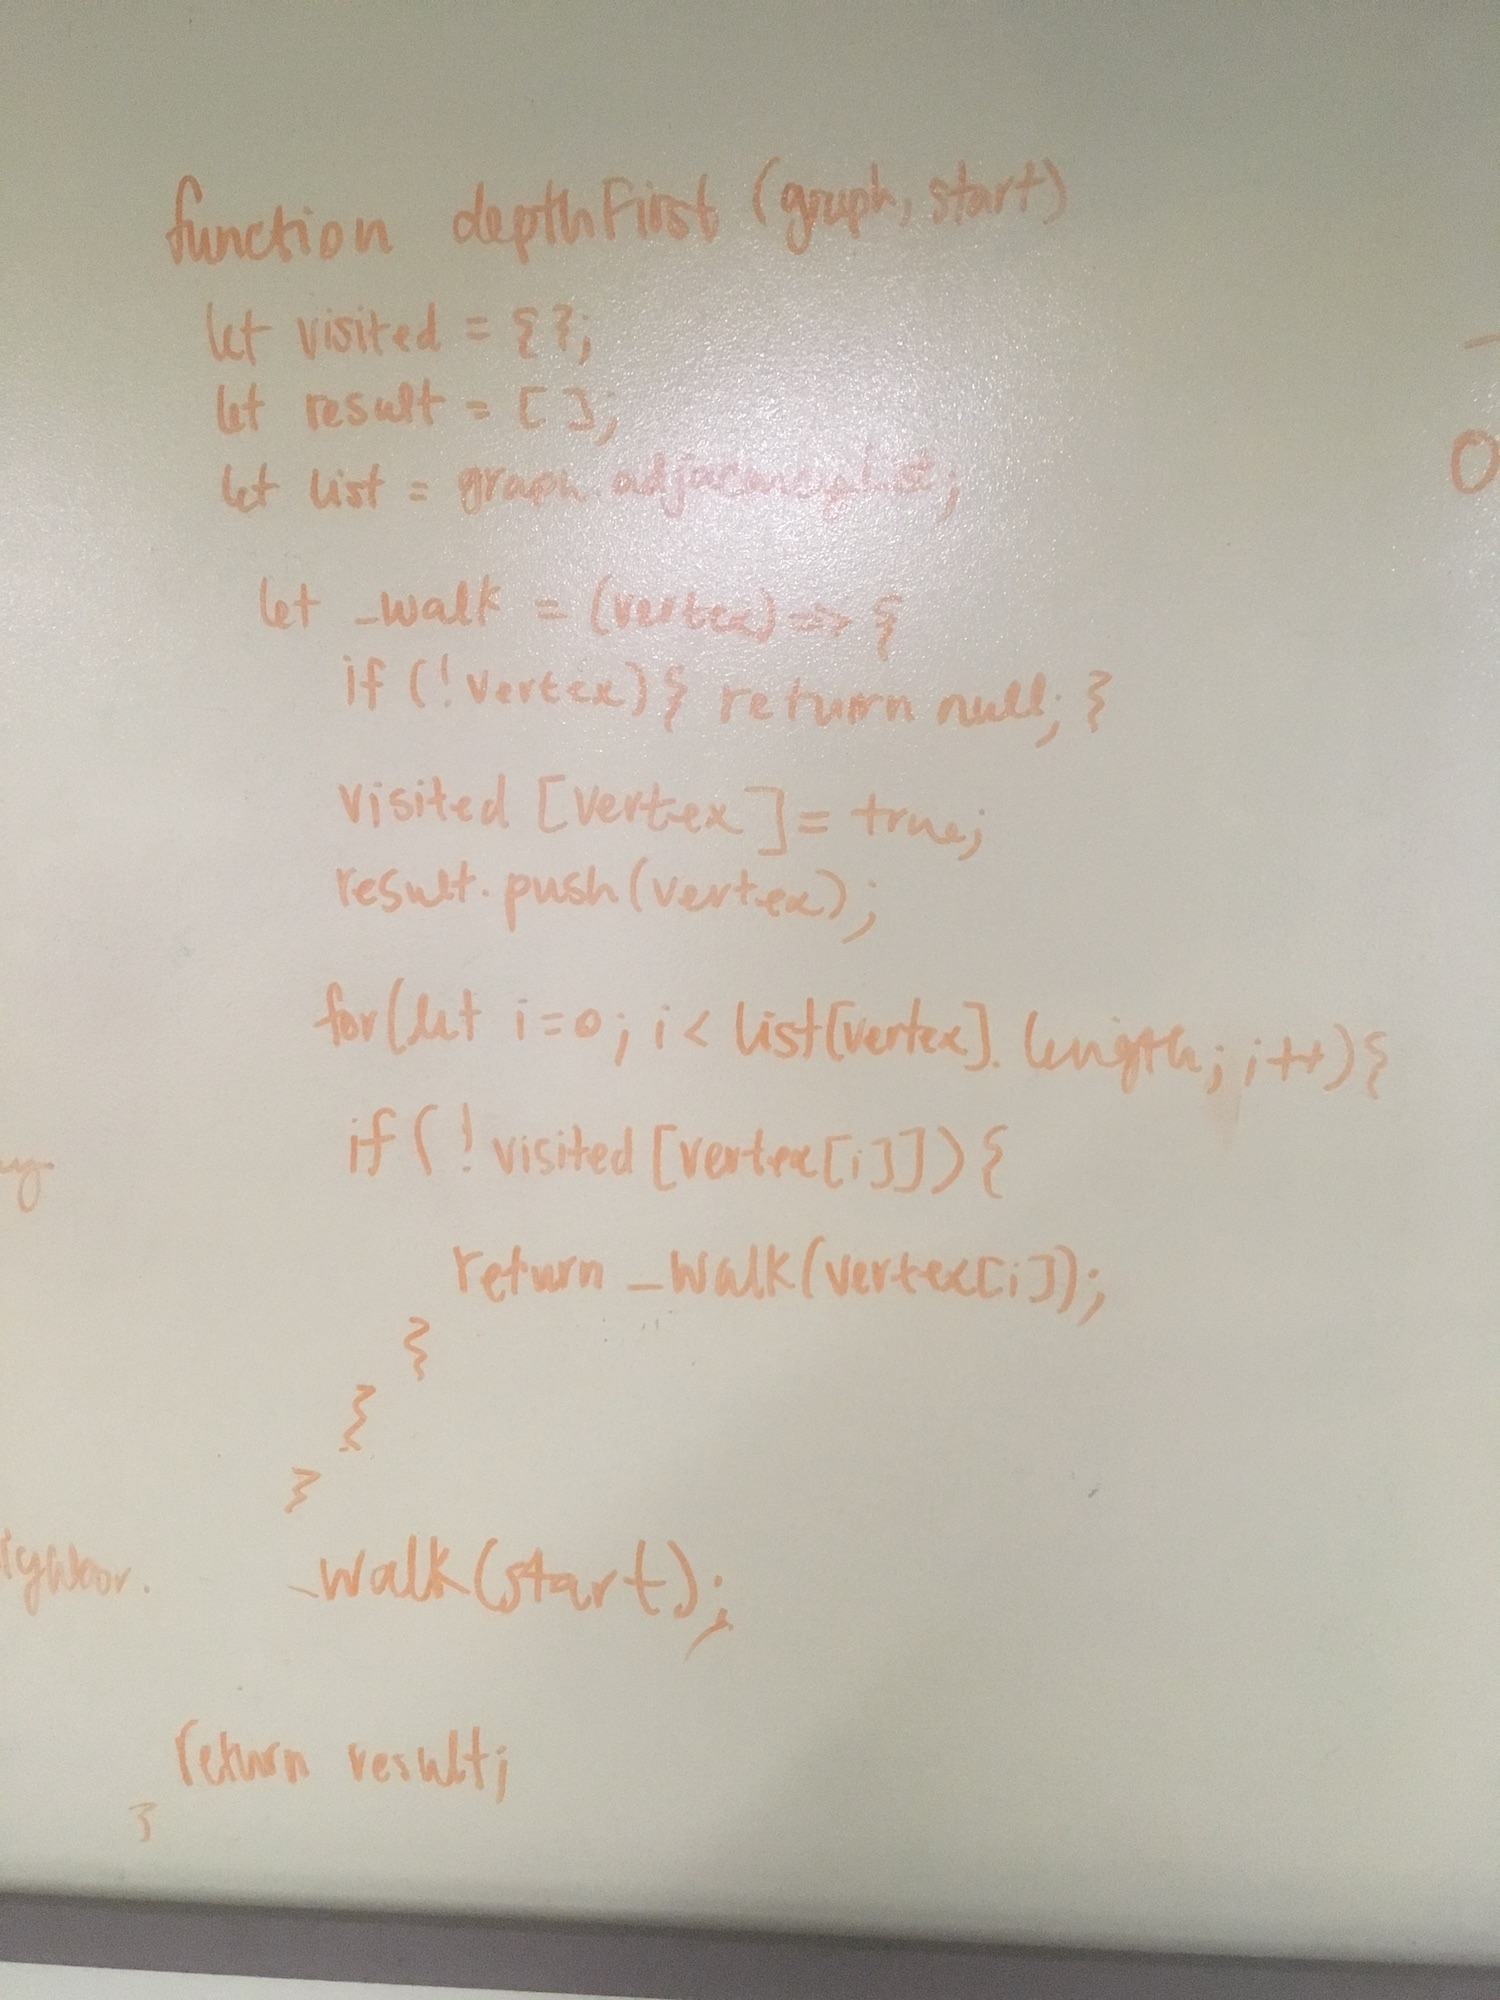 function depthFirst (graph, start)
let visited = {};
let result = [];
let list = graph.adjacencyList;
let _walk = (vertex) => {
if (!vertex) { return null; }
visited [vertex] = true;
result.push(vertex);
for(let i=0; i < list[vertex].length; i++){
if (!visited [vertex[i]]) {
return _walk(vertex[i]);
}
}
}
_walk(start);
return result;
}